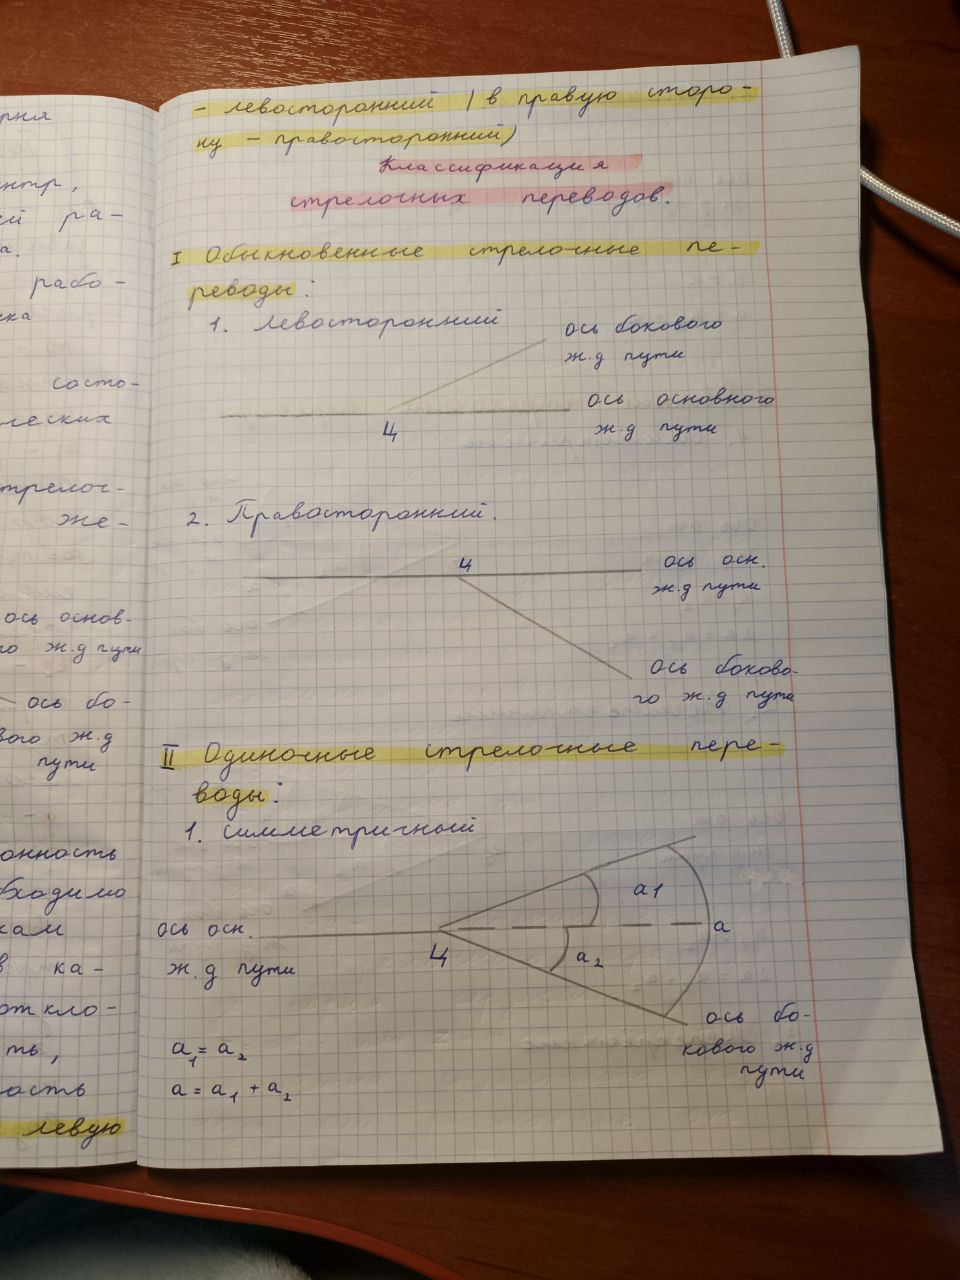 рня
нтр,
ей ра-
а.
рабо-
ка
состо-
ческих
трелоч-
же-
ось основ-
го ж.д пути
ось бо-
вого ж.д
пути
онность
бходимо
кам
в ка-
откло-
ть,
ность
левую
- левосторонний / в правую сторо-
ну - правосторонний)
Классификация
стрелочных переводов.
I Обыкновенные стрелочные пе-
реводы:
1. Левосторонний
ось бокового
ж.д пути
ось основного
ж.д пути
Ц
2. Правосторонний.
Ц
ось осн.
ж.д пути
ось боково-
го ж.д пути
II Одиночные стрелочные пере-
воды:
1. симметричный
a1
ось осн.
ж.д пути
Ц
a
a2
ось бо-
кового ж.д
пути
a1 = a2
a = a1 + a2